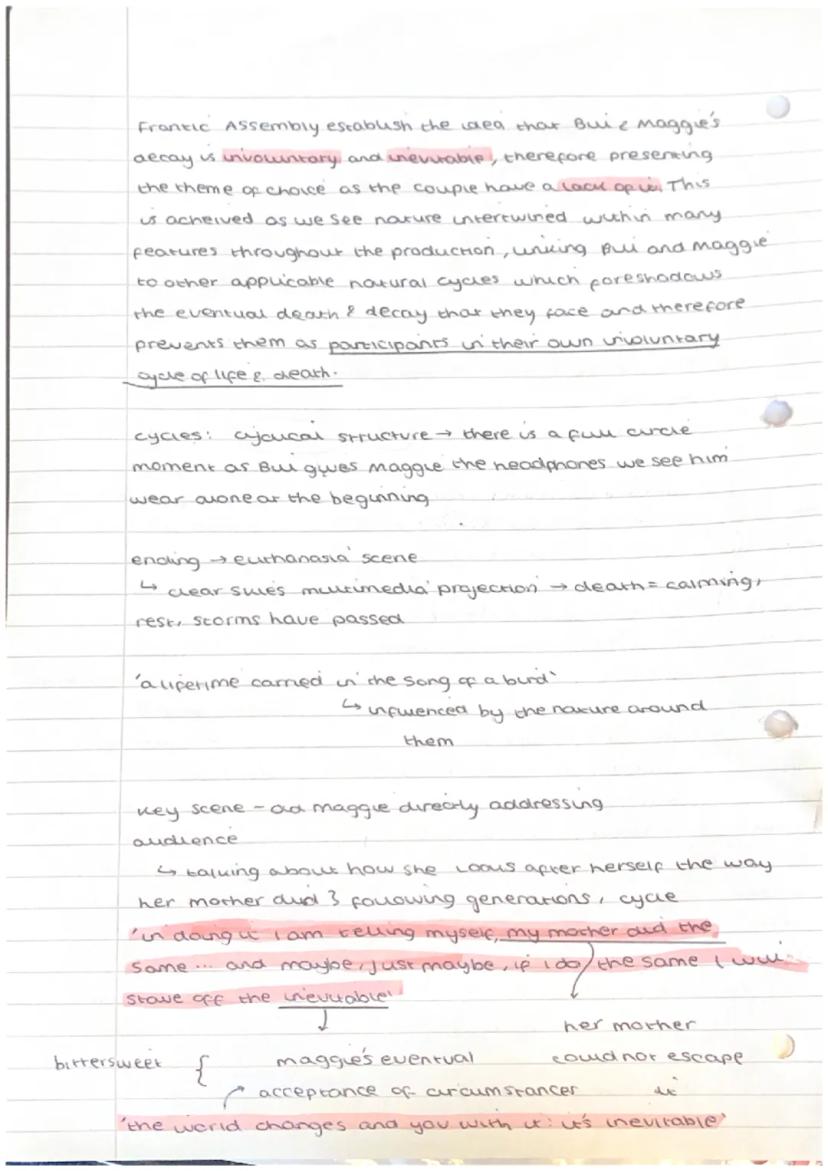 Frantic Assembly establish the idea that Bill & Maggie's
decay is involuntary and inevitable, therefore presenting
the theme of choice as the couple have a lack of it. This
is acheived as we see nature intertwined within many
features throughout the production, linking Bill and Maggie
to other applicable natural cycles which foreshadows
the eventual death & decay that they face and therefore
prevents them as participants in their own involuntary
cycle of life & death.
cycles: cyclical structure → there is a full circle
moment as Bill gives Maggie the headphones we see him
wear alone at the beginning
ending → euthanasia scene
↳ clear skies multimedia projection → death = calming,
rest, storms have passed
'a lifetime carried in the song of a bird'
↳ influenced by the nature around
them
key scene - old maggie directly addressing
audience
↳ talking about how she looks after herself the way
her mother did & following generations, cycle
'in doing it I am telling myself, my mother did the
same... and maybe, just maybe, if i do the same I will
stave off the inevitable'
her mother
bittersweet { maggie's eventual could not escape
acceptance of circumstances it
'the world changes and you with it: it's inevitable'